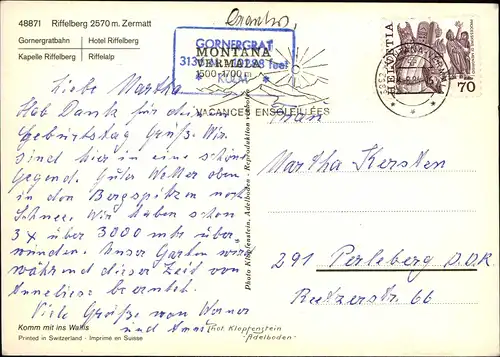 48871 Riffelberg 2570 m. Zermatt
Gornergratbahn Hotel Riffelberg
Kapelle Riffelberg Riffelalp
GORNERGRAT
MONTANA
VERMALA
1500-1700 m
VACANCES ENSOLEILLÉES
HELVETIA
70
Liebe Martha
Hab Dank für deine
Geburtstag Grüße. Wir
sind hier in eine schöne
Gegend. Guter Wetter oben
in den Bergspitzen noch
Schnee. Wir haben schon
3 x über 3000 mtr über-
winden. Unser Garten wird
während dieser Zeit von
Anneliese beerntet.
Viele Grüße von Werner
und
Frau
Martha Kersten
291 Perleberg D.D.R.
66
Photo Klopfenstein, Adelboden - Reproduktion verboten
Komm mit ins Wallis
Printed in Switzerland - Imprimé en Suisse
Phot. Klopfenstein
Adelboden